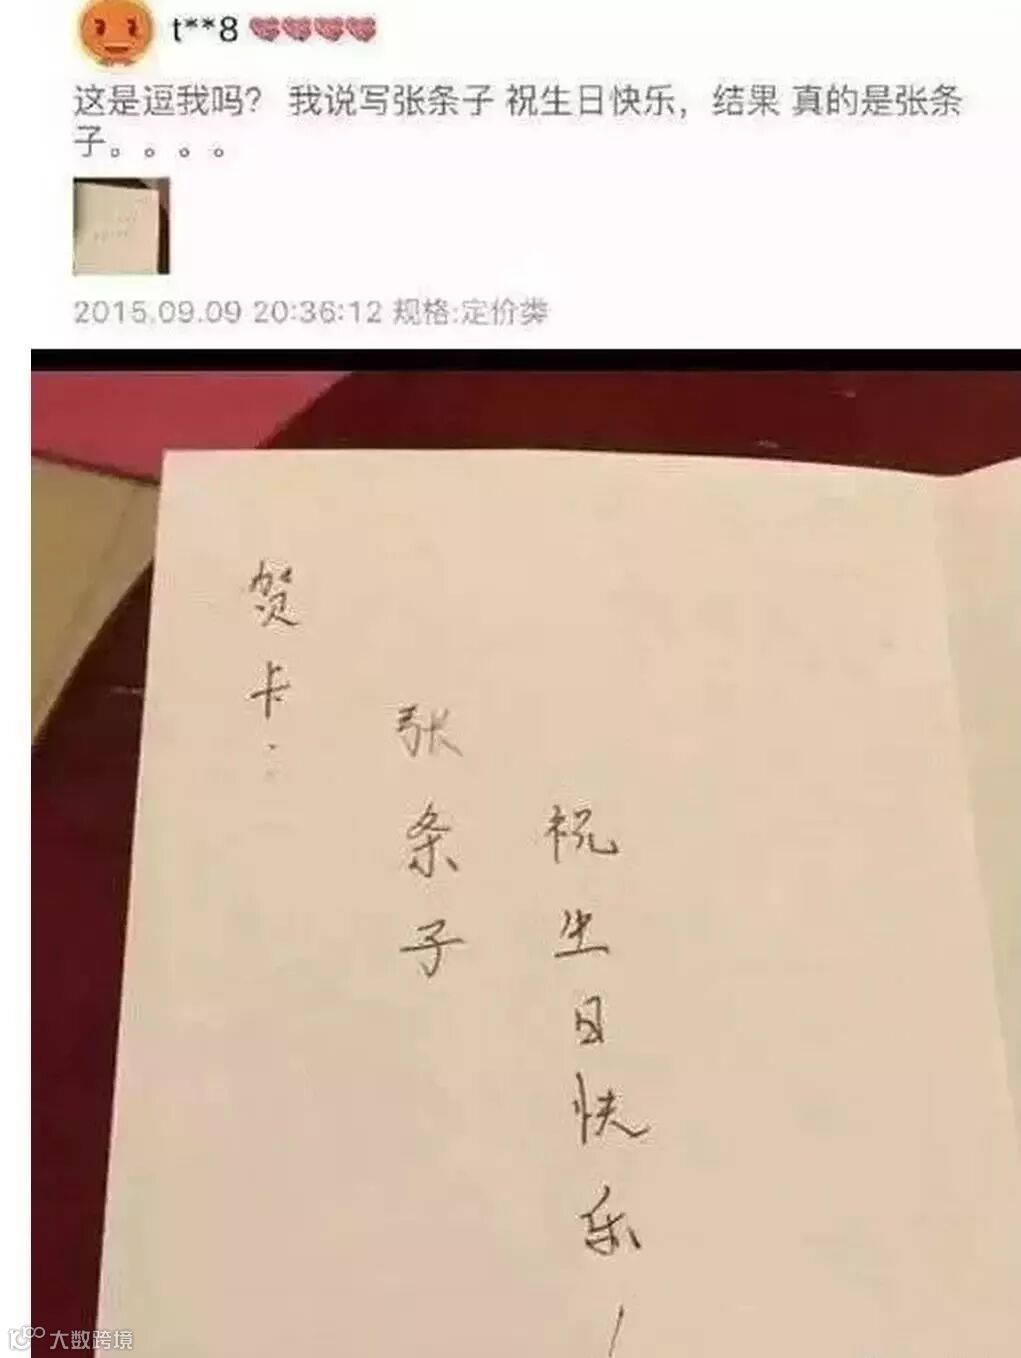 t**8
这是逗我吗? 我说写张条子 祝生日快乐，结果 真的是张条
子。。。。
2015.09.09 20:36:12 规格:定价类
贺卡：
张条子
祝生日快乐！
大数跨境